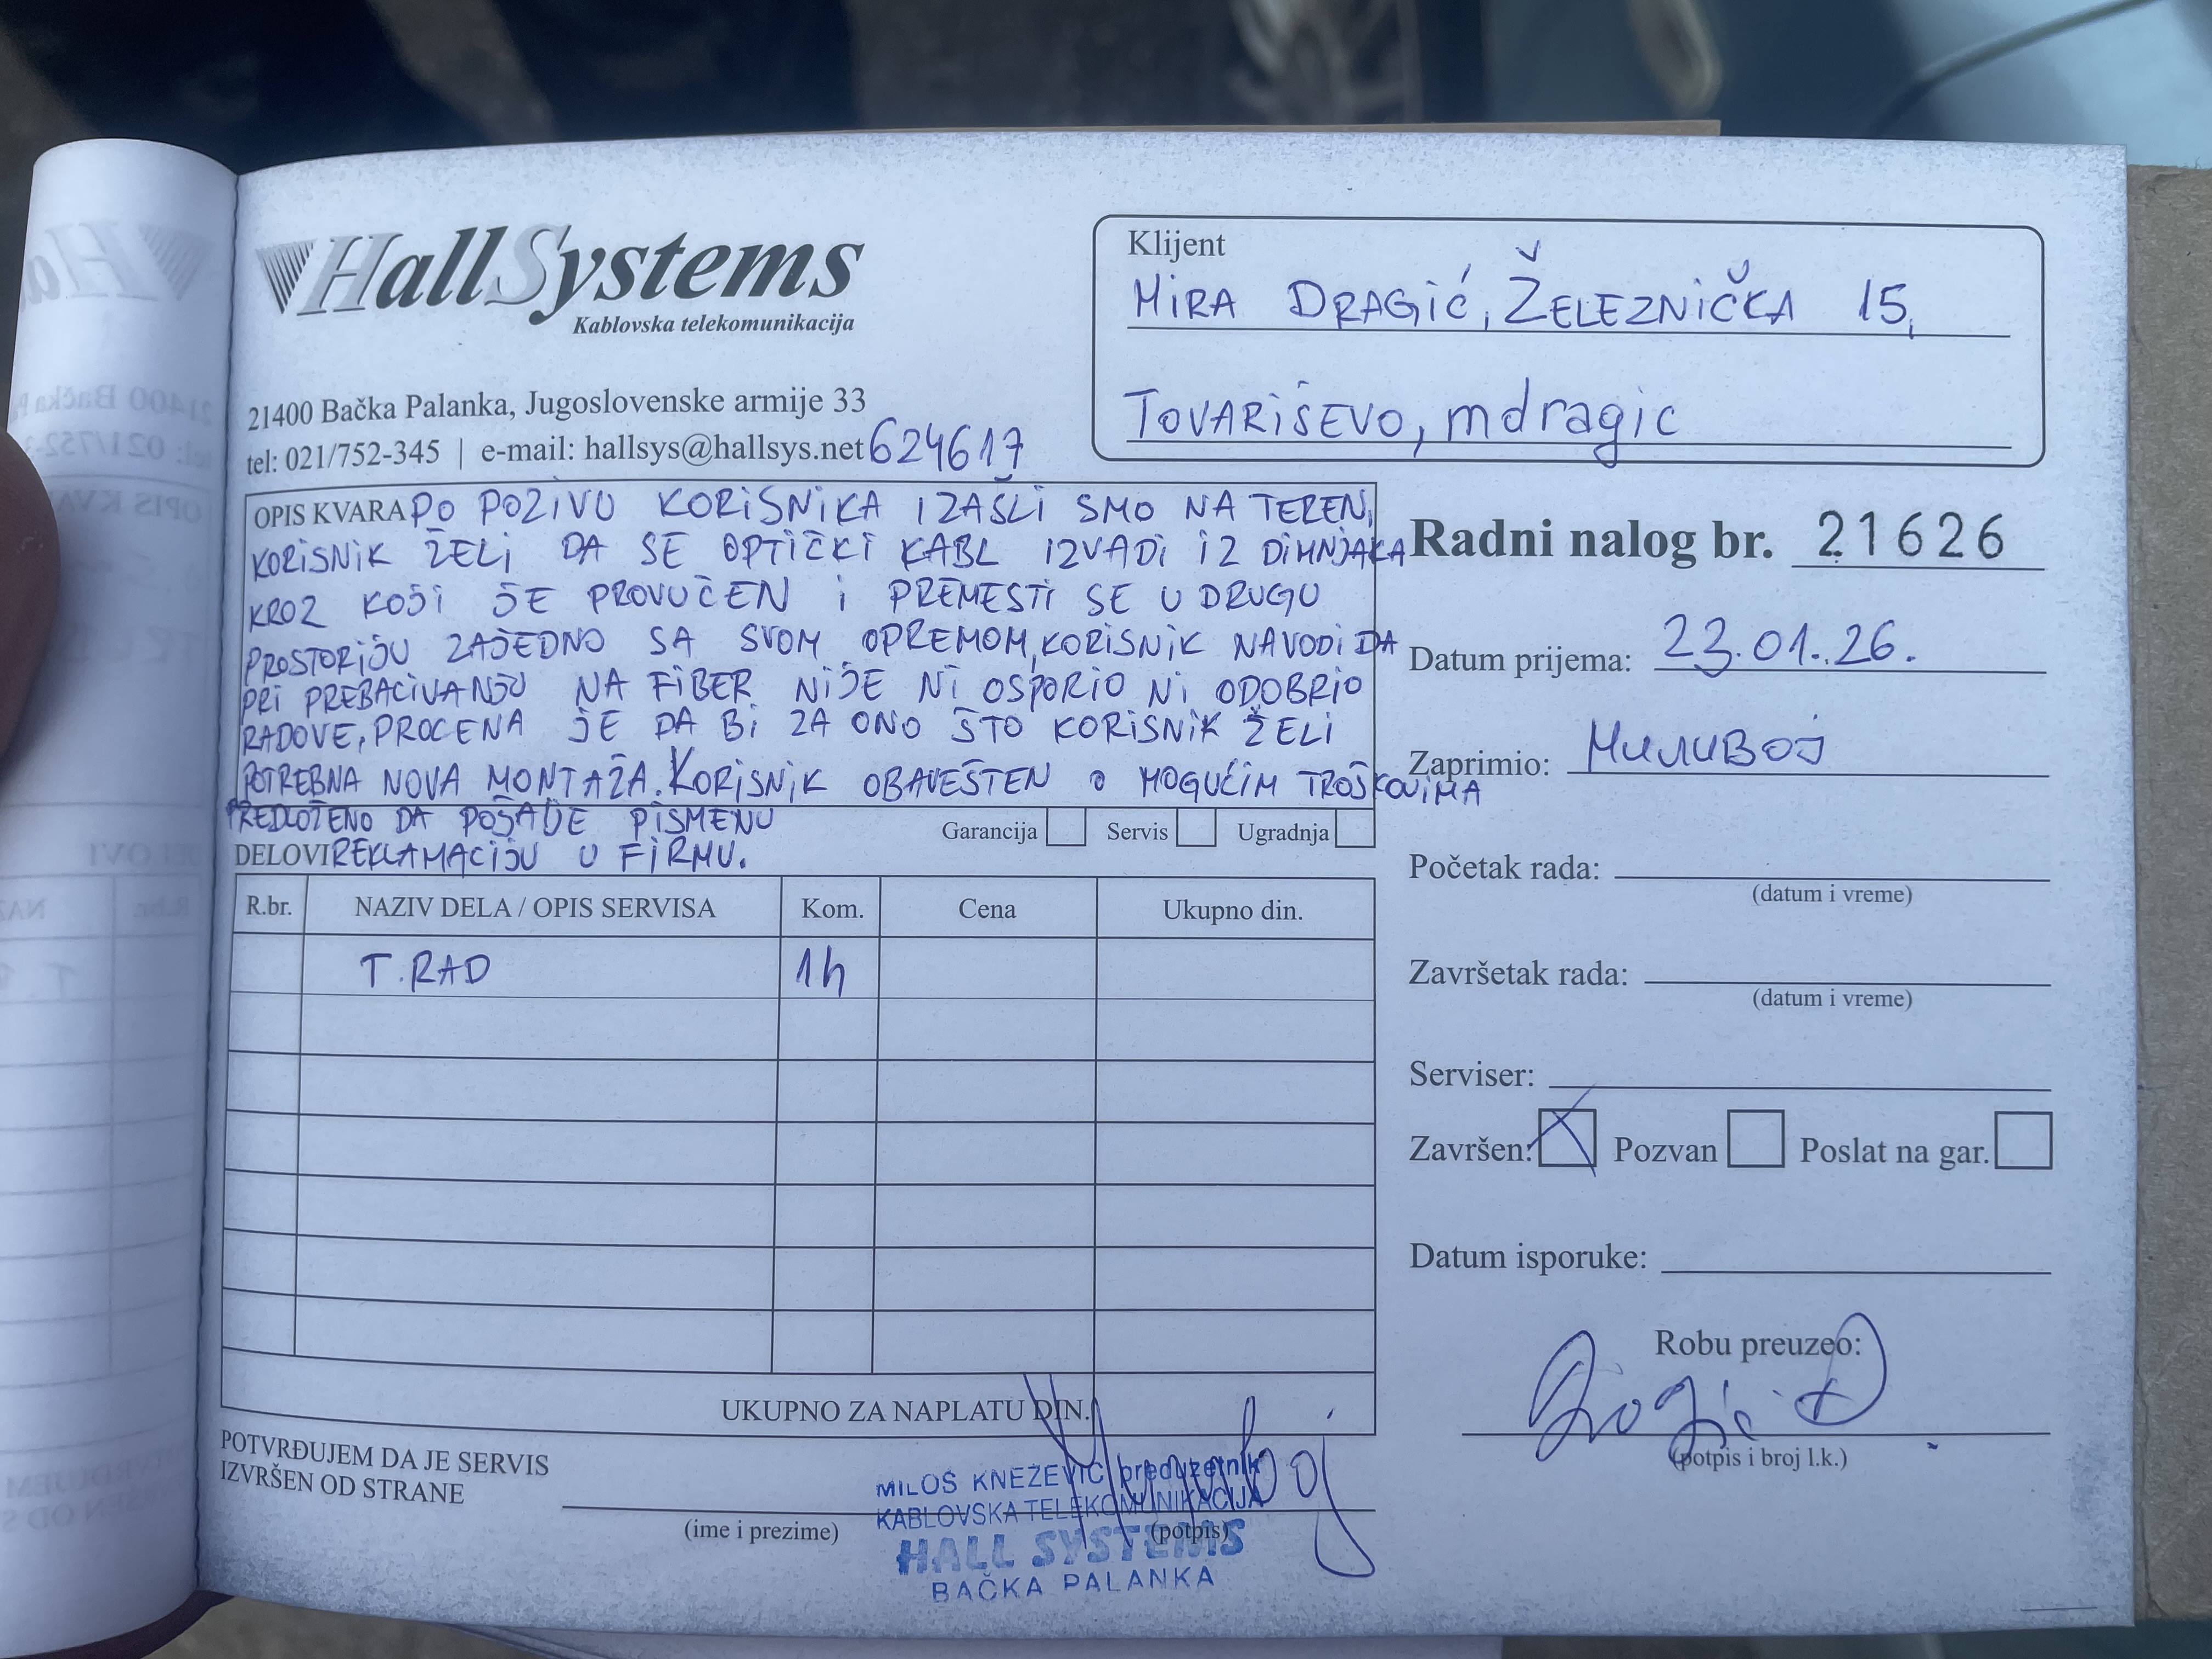 HallSystems
Kablovska telekomunikacija
21400 Bačka Palanka, Jugoslovenske armije 33
tel: 021/752-345 | e-mail: hallsys@hallsys.net 624617
Klijent
MIRA DRAGIĆ, ŽELEZNIČKA 15,
TOVARIŠEVO, mdragic
OPIS KVARA PO POZIVU KORISNIKA IZAŠLI SMO NA TEREN,
KORISNIK ŽELI DA SE OPTIČKI KABL IZVADI IZ DIMNJAKA
KROZ KOJI JE PROVUČEN I PREMESTI SE U DRUGU
PROSTORIJU ZAJEDNO SA SVOM OPREMOM, KORISNIK NAVODI DA
PRI PREBACIVANJU NA FIBER NIJE NI OSPORIO NI ODOBRIO
RADOVE, PROCENA JE DA BI ZA ONO ŠTO KORISNIK ŽELI
POTREBNA NOVA MONTAŽA. KORISNIK OBAVEŠTEN O MOGUĆIM TROŠKOVIMA
PREDLOŽENO DA POŠALJE PISMENU
REKLAMACIJU U FIRMU.
Garancija Servis Ugradnja
DELOVI
R.br. NAZIV DELA / OPIS SERVISA Kom. Cena Ukupno din.
T.RAD 1h
UKUPNO ZA NAPLATU DIN.
POTVRĐUJEM DA JE SERVIS
IZVRŠEN OD STRANE
(ime i prezime) (potpis)
MILOŠ KNEŽEVIĆ preduzetnik
KABLOVSKA TELEKOMUNIKACIJA
HALL SYSTEMS
BAČKA PALANKA
Radni nalog br. 21626
Datum prijema: 23.01.26.
Zaprimio: Миливој
Početak rada:
(datum i vreme)
Završetak rada:
(datum i vreme)
Serviser:
Završen: Pozvan Poslat na gar.
Datum isporuke:
Robu preuzeo:
(potpis i broj l.k.)